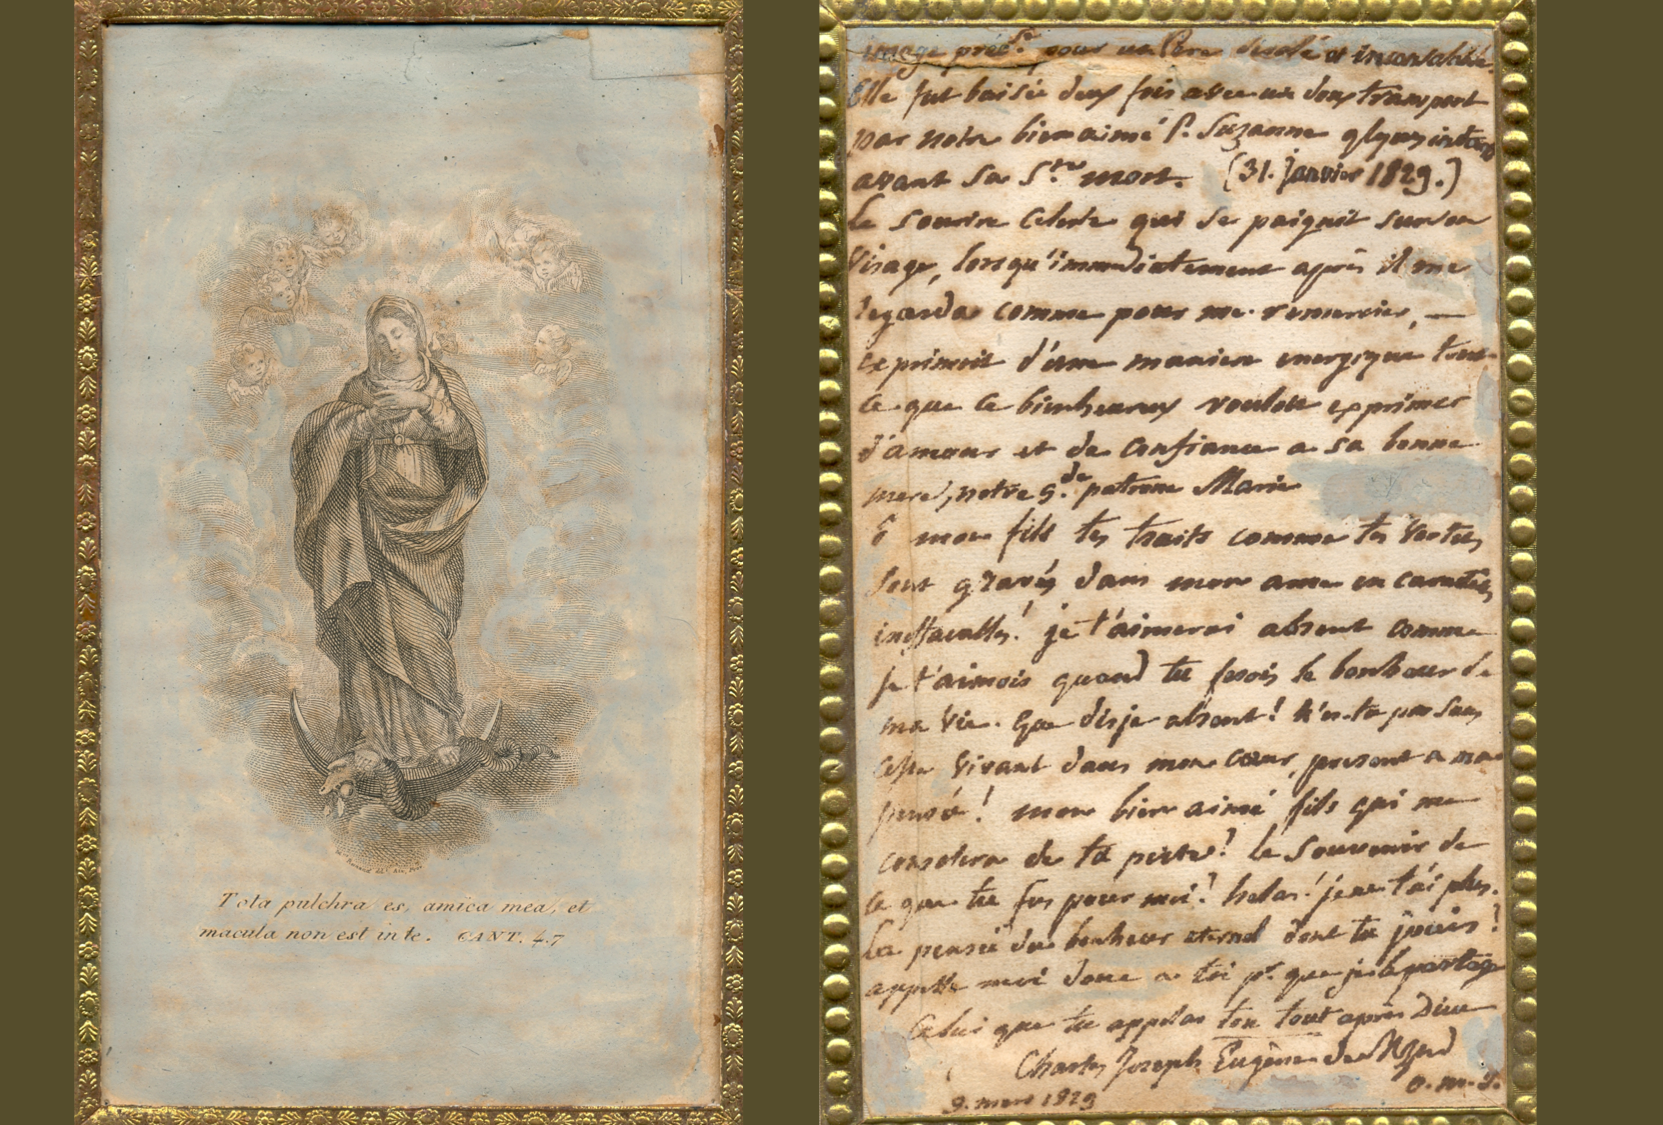 Tota pulchra es, amica mea, et
macula non est in te. CANT. 4.7
image préc.se pour un Père désolé et inconsolable.
Elle fut baisée deux fois avec un doux transport
par notre bien aimé P. Suzanne qlques instans
avant sa S.te mort. (31. janvier 1829.)
Le sourire celeste qui se paignit sur son
visage, lorsqu'immediatement après il me
regarda comme pour me remercier, —
exprimoit d'une maniere energique tout
ce que ce bienheureux vouloit exprimer
d'amour et de confiance a sa bonne
mere, notre g.de patrone Marie
O mon fils tes traits comme tes vertus
sont gravés dans mon ame en caractères
ineffacables! je t'aimerai absent comme
je t'aimois quand tu fesois le bonheur de
ma vie. Que dis je absent! n'es tu pas sans
cesse vivant dans mon cœur, present a ma
pensée! mon bien aimé fils qui me
consolera de ta perte? le souvenir de
ce que tu fus pour moi? helas! je ne t'ai plus.
La pensée du bonheur eternel dont tu jouis?
appelle moi donc a toi p.r que je le partage
Celui que tu appelas ton tout après Dieu
Charles Joseph Eugène de Mazenod
o. m. J.
9. mars 1829